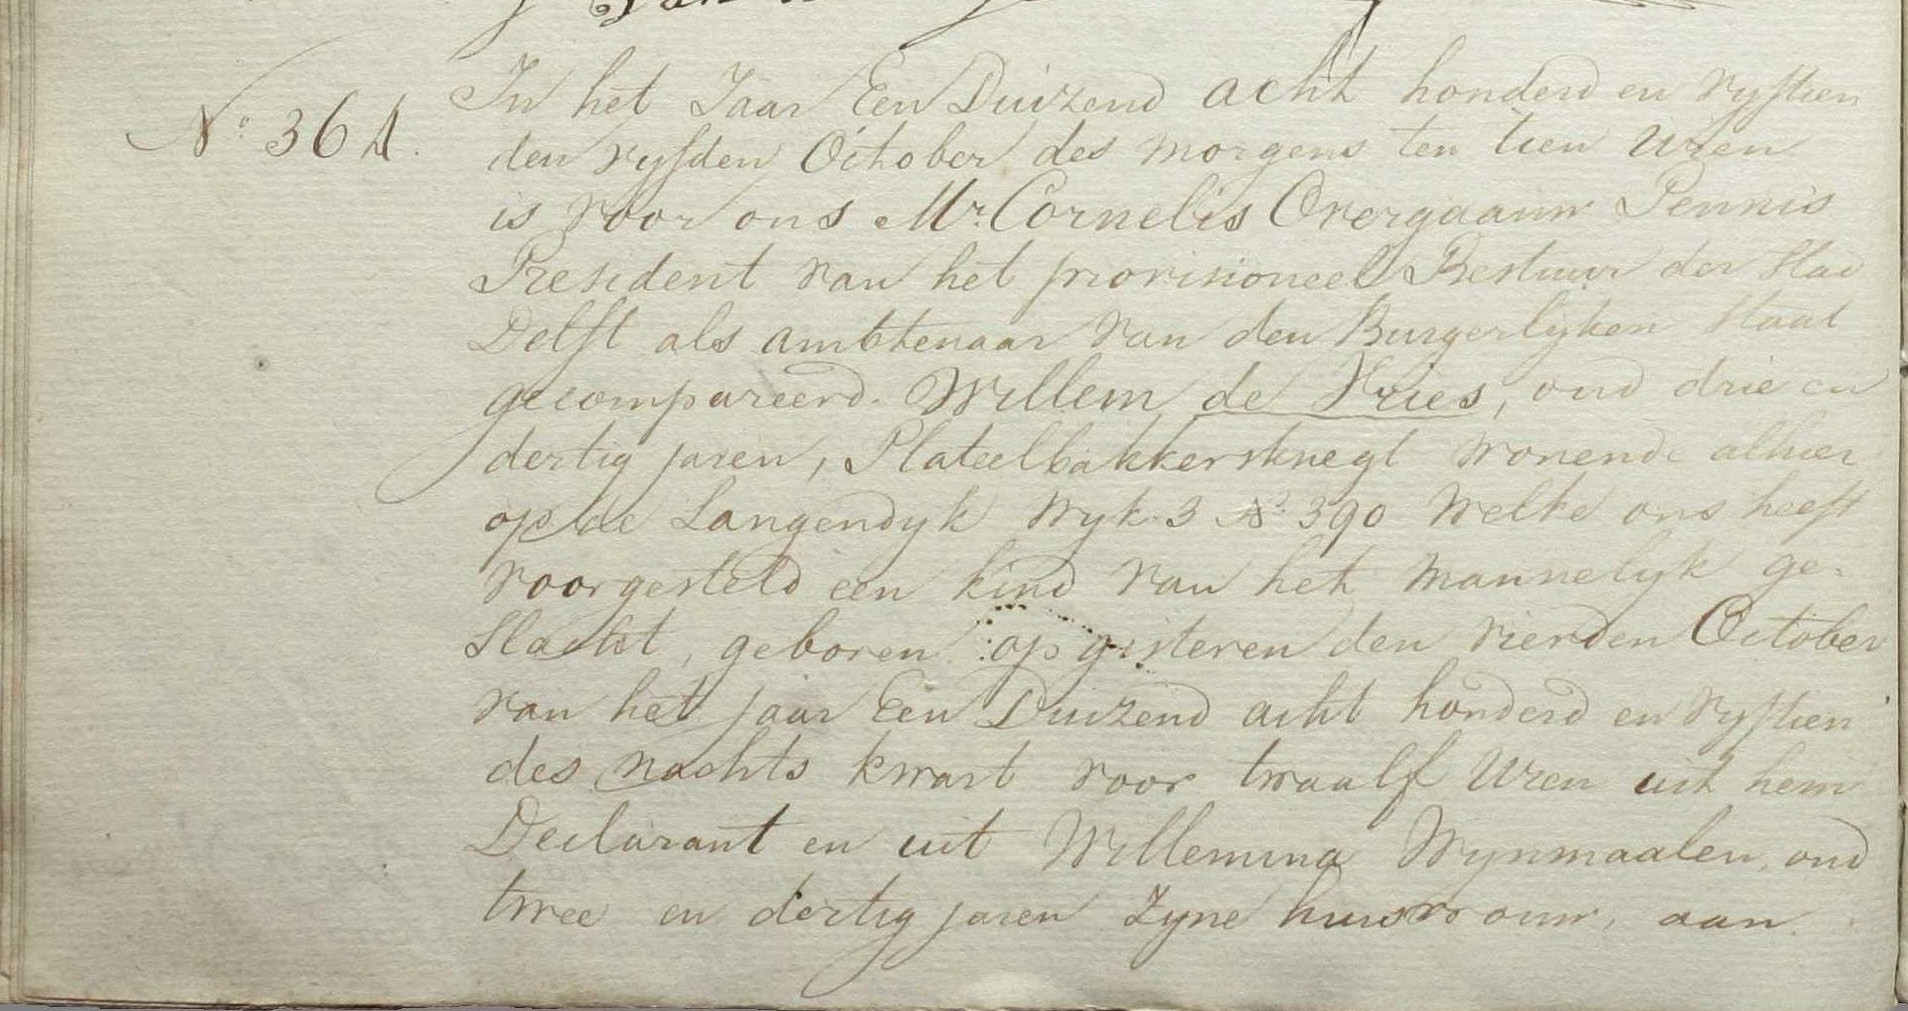 No 364.
In het Jaar Een Duizend acht honderd en vyftien
den vyfden October des morgens ten tien Uren
is voor ons Mr. Cornelis Overgaauw Pennis
President van het provisioneel Bestuur der Stad
Delft als ambtenaar van den Burgerlyken Staat
gecompareerd. Willem de Vries, oud drie en
dertig jaren, Plateelbakkersknegt wonende alhier
op de Langendyk Wyk 3 No 390 Welke ons heeft
voorgesteld een kind van het mannelyk ge-
slacht, geboren op gisteren den vierden October
van het jaar Een Duizend acht honderd en vyftien
des nachts kwart voor twaalf Uren uit hem
Declarant en uit Willemina Wynmaalen, oud
twee en dertig jaren zyne huisvrouw, aan